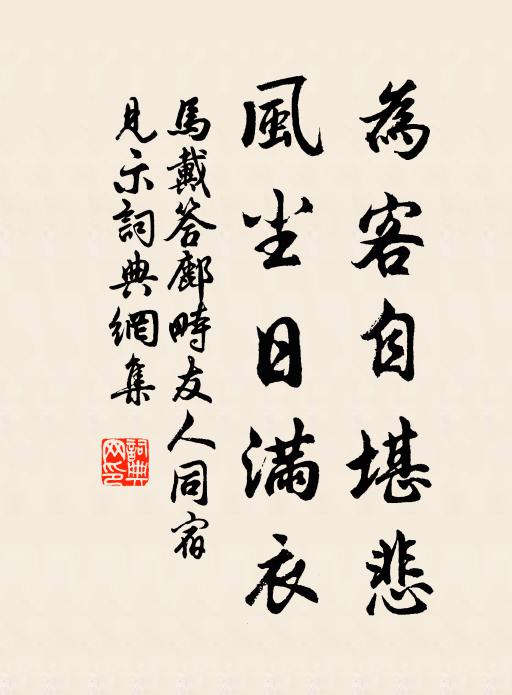 為客自堪悲
風尘日满衣
馬戴答鄜畤友人同宿
見示詞典網集
詞典网印